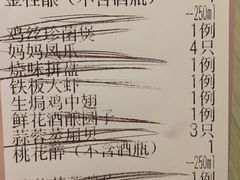 金桂酿（不含酒瓶） 1
--250ml
鸡丝珍菌煲 1例
妈妈凤爪 4只
烧味拼盘 1例
铁板大虾 1例
生焗鸡中翅 1例
鲜花酒酿圆子 1例
蒜蓉 3只
桃花醉（不含酒瓶） 1
--250ml
1例